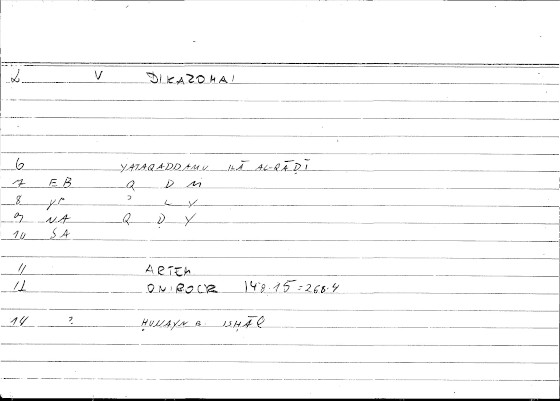 2 V DIKAZOMAI
6 YATAQADDAMU ILĀ AL-QĀḌĪ
7 EB Q D M
8 yP ʾ L Y
9 NA Q Ḍ Y
10 SA
11 ARTEM
12 ONIROCR 148.15=268.4
14 ? ḤUNAYN B. ISḤĀQ